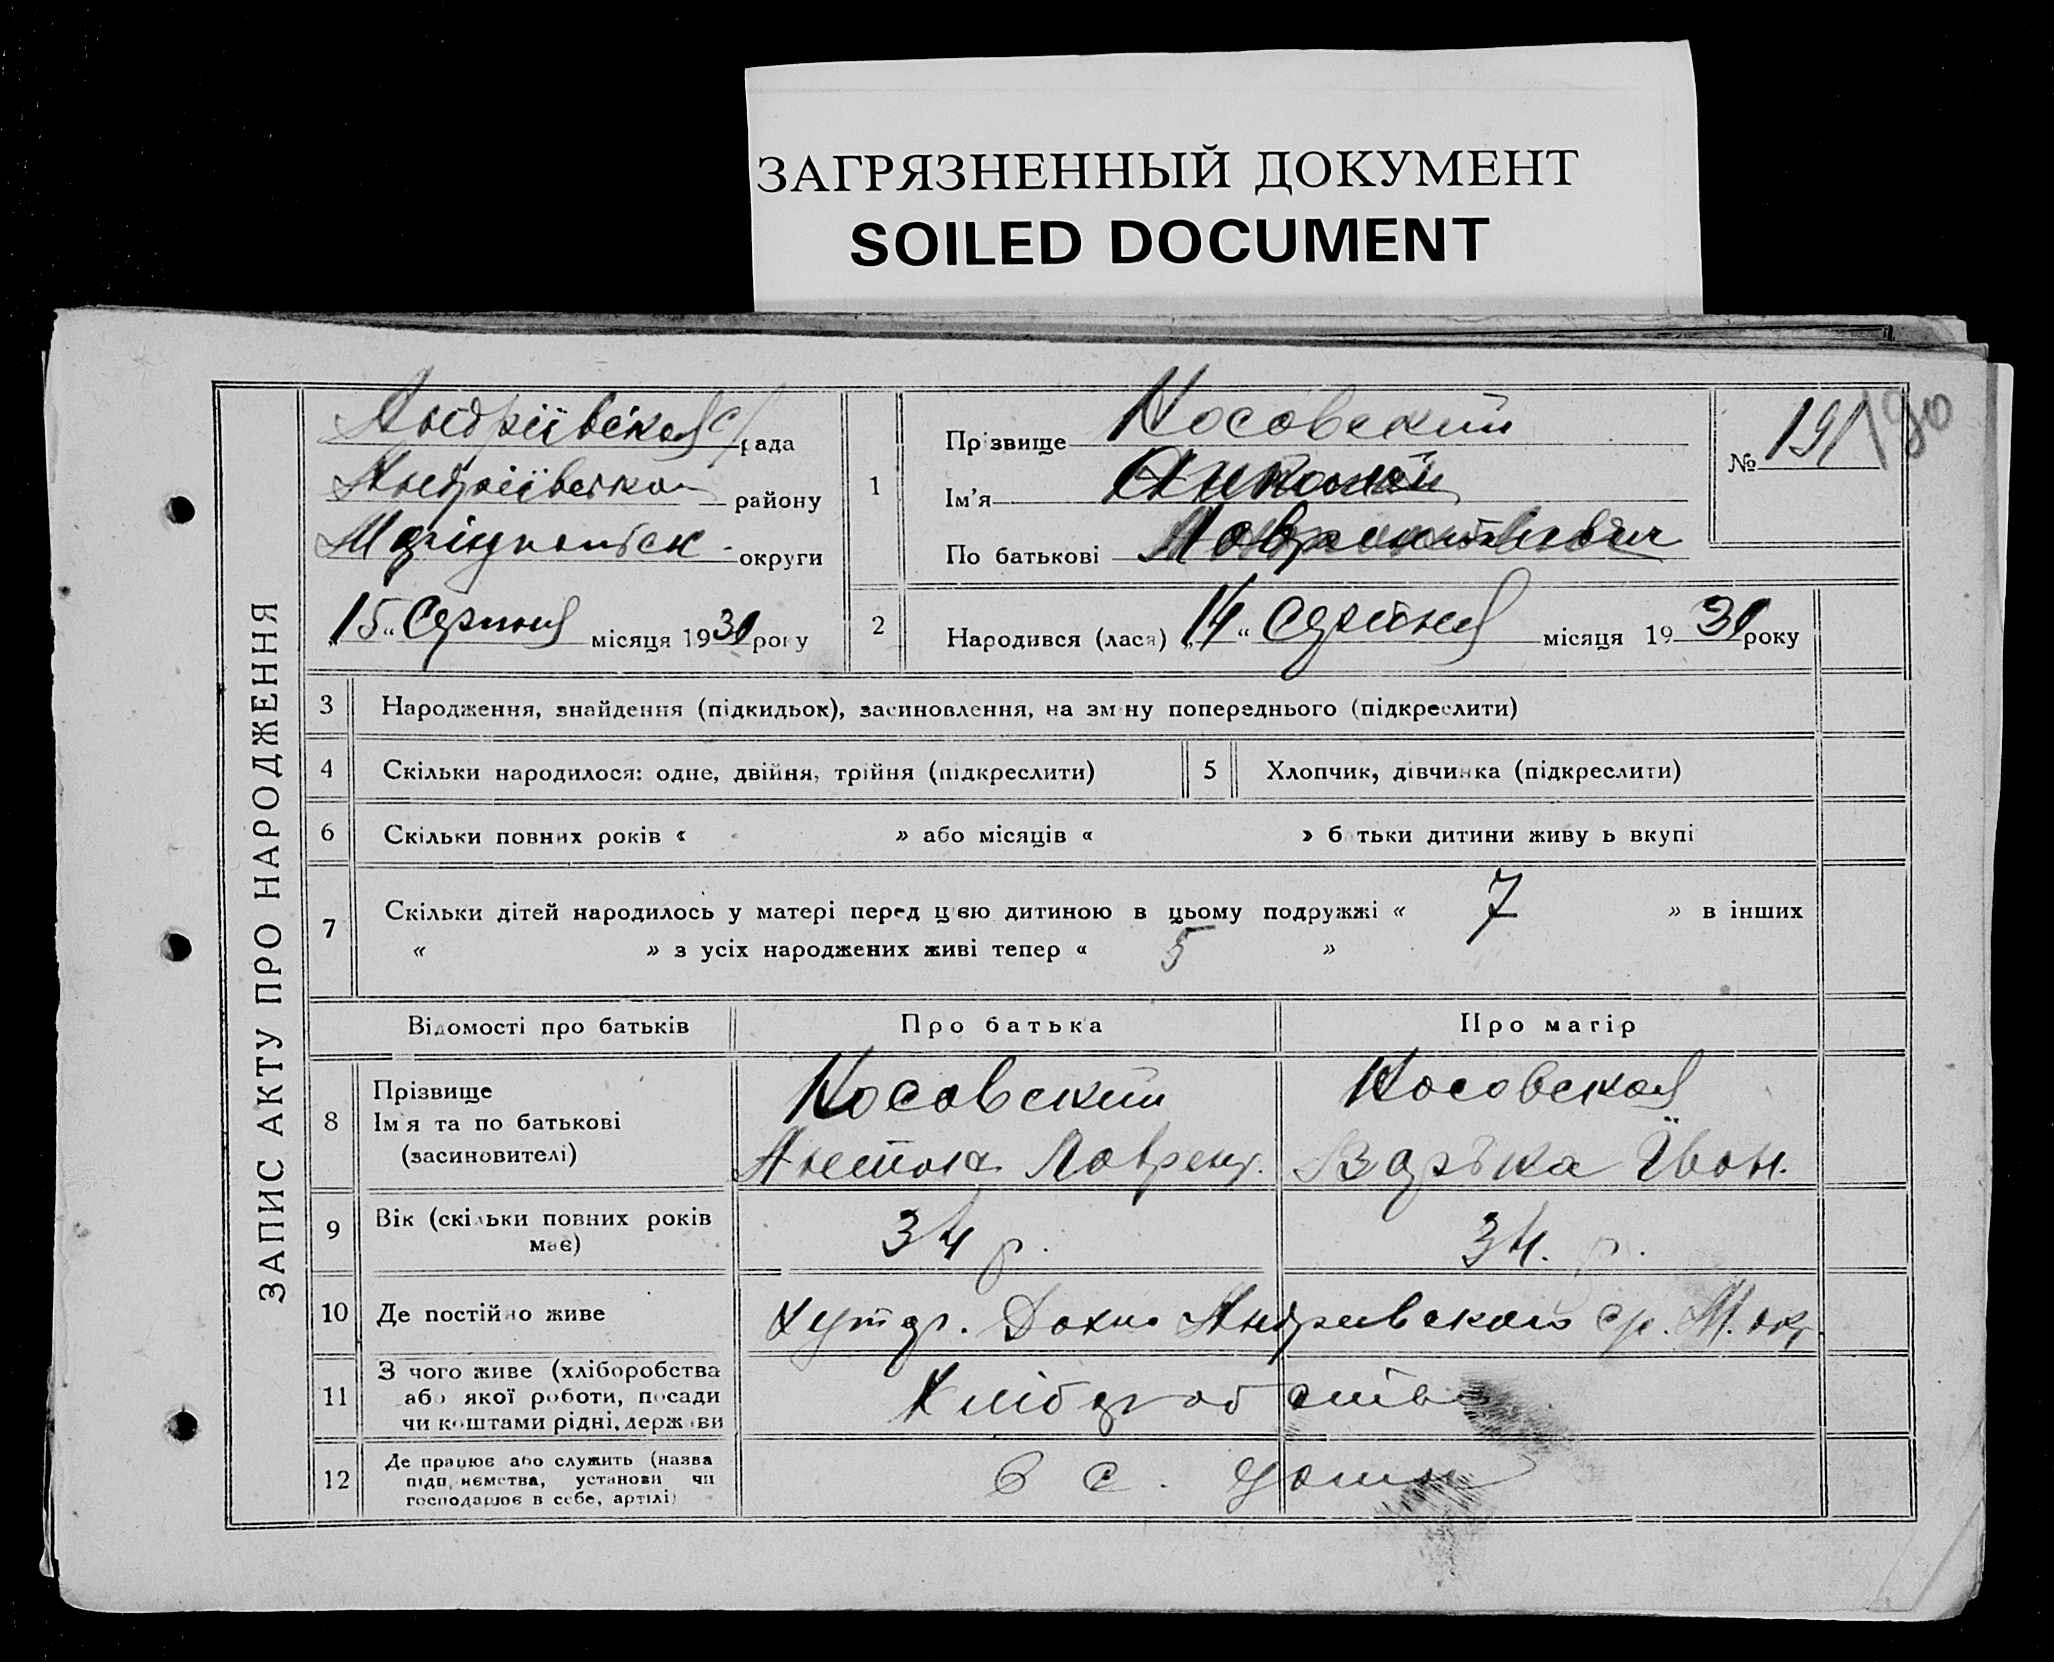 ЗАГРЯЗНЕННЫЙ ДОКУМЕНТ
SOILED DOCUMENT
ЗАПИС АКТУ ПРО НАРОДЖЕННЯ
Андріївская с/рада
Андріївска району
округи
„15“ Серпня місяця 1930 року
1
Прізвище Косовский
Ім'я
По батькові
№ 191 190
2
Народився (лася) „14“ Серпня місяця 1930 року
3
Народження, знайдення (підкидьок), засиновлення, на зміну попереднього (підкреслити)
4
Скільки народилося: одне, двійня, трійня (підкреслити)
5
Хлопчик, дівчинка (підкреслити)
6
Скільки повних років « » або місяців « » батьки дитини живуть вкупі
7
Скільки дітей народилось у матері перед цією дитиною в цьому подружжі « 7 » в інших
« » з усіх народжених живі тепер « 5 »
Відомості про батьків
Про батька
Про матір
8
Прізвище
Ім'я та по батькові
(засиновителі)
Косовский
Антон Лаврент.
Косовская
Варька Їван.
9
Вік (скільки повних років
має)
34 р.
34. р.
10
Де постійно живе
Хутор. Андреевской с/р. М. окр
11
З чого живе (хліборобства
або якої роботи, посади
чи коштами рідні, держави
Хліборобство
12
Де працює або служить (назва
підприємства, установи чи
господарює в себе, артілі)